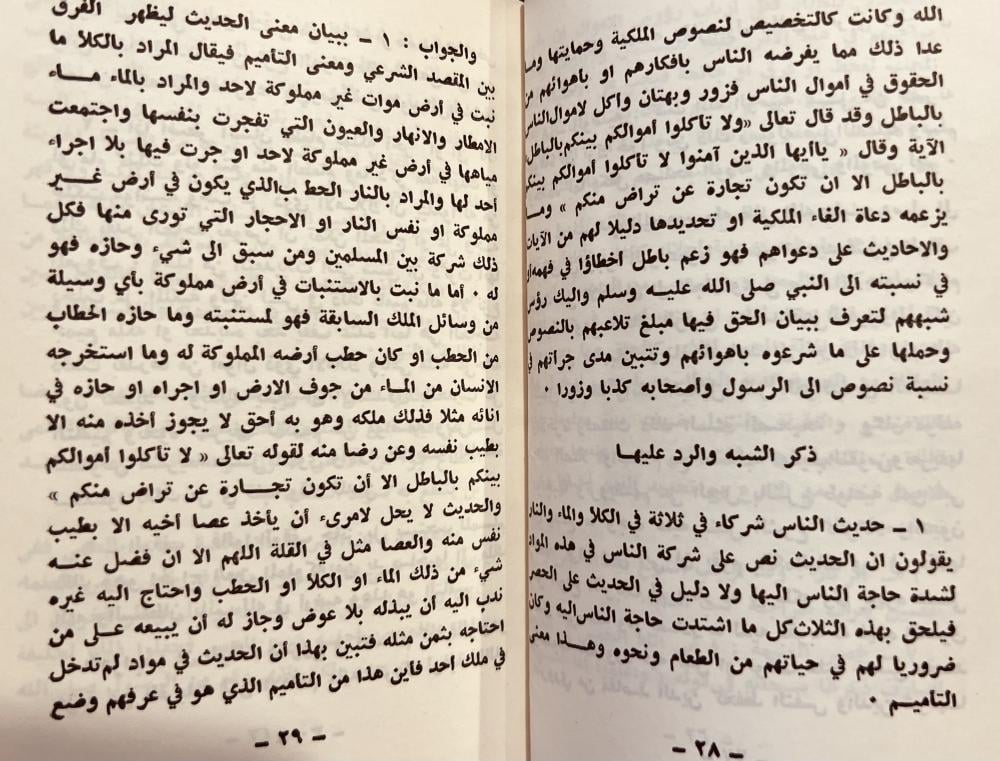 الله وكانت كالتخصيص لنصوص الملكية وحمايتها وما
عدا ذلك مما يفرضه الناس بافكارهم او باهوائهم من
الحقوق في أموال الناس فزور وبهتان وأكل لاموال الناس
بالباطل وقد قال تعالى «ولا تأكلوا أموالكم بينكم بالباطل»
الآية وقال « ياأيها الذين آمنوا لا تأكلوا أموالكم بينكم
بالباطل الا ان تكون تجارة عن تراض منكم » وما
يزعمه دعاة الغاء الملكية او تحديدها دليلا لهم من الآيات
والاحاديث على دعواهم فهو زعم باطل أخطاؤا في فهمه او
في نسبته الى النبي صلى الله عليه وسلم واليك رؤس
شبههم لتعرف ببيان الحق فيها مبلغ تلاعبهم بالنصوص
وحملها على ما شرعوه باهوائهم وتتبين مدى جرأتهم في
نسبة نصوص الى الرسول وأصحابه كذبا وزورا ٠
ذكر الشبه والرد عليها
١ ـ حديث الناس شركاء في ثلاثة في الكلأ والماء والنار
يقولون ان الحديث نص على شركة الناس في هذه المواد
لشدة حاجة الناس اليها ولا دليل في الحديث على الحصر
فيلحق بهذه الثلاث كل ما اشتدت حاجة الناس اليه وكان
ضروريا لهم في حياتهم من الطعام ونحوه وهذا معنى
التأميم ٠
ـ ٢٨ ـ
والجواب : ١ ـ ببيان معنى الحديث ليظهر الفرق
بين المقصد الشرعي ومعنى التأميم فيقال المراد بالكلأ ما
نبت في أرض موات غير مملوكة لاحد والمراد بالماء ماء
الامطار والانهار والعيون التي تفجرت بنفسها واجتمعت
مياهها في أرض غير مملوكة لاحد او جرت فيها بلا اجراء
أحد لها والمراد بالنار الحطب الذي يكون في أرض غير
مملوكة او نفس النار او الاحجار التي تورى منها فكل
ذلك شركة بين المسلمين ومن سبق الى شيء وحازه فهو
له ٠ أما ما نبت بالاستنبات في أرض مملوكة بأي وسيلة
من وسائل الملك السابقة فهو لمستنبته وما حازه الحطاب
من الحطب او كان حطب أرضه المملوكة له وما استخرجه
الانسان من الماء من جوف الارض او اجراه او حازه في
انائه مثلا فذلك ملكه وهو به أحق لا يجوز أخذه منه الا
بطيب نفسه وعن رضا منه لقوله تعالى « لا تأكلوا أموالكم
بينكم بالباطل الا أن تكون تجارة عن تراض منكم »
والحديث لا يحل لامرىء أن يأخذ عصا أخيه الا بطيب
نفس منه والعصا مثل في القلة اللهم الا ان فضل عنه
شيء من ذلك الماء او الكلأ او الحطب واحتاج اليه غيره
ندب اليه أن يبذله بلا عوض وجاز له أن يبيعه على من
احتاجه بثمن مثله فتبين بهذا أن الحديث في مواد لم تدخل
في ملك احد فاين هذا من التاميم الذي هو في عرفهم وضع
ـ ٢٩ ـ